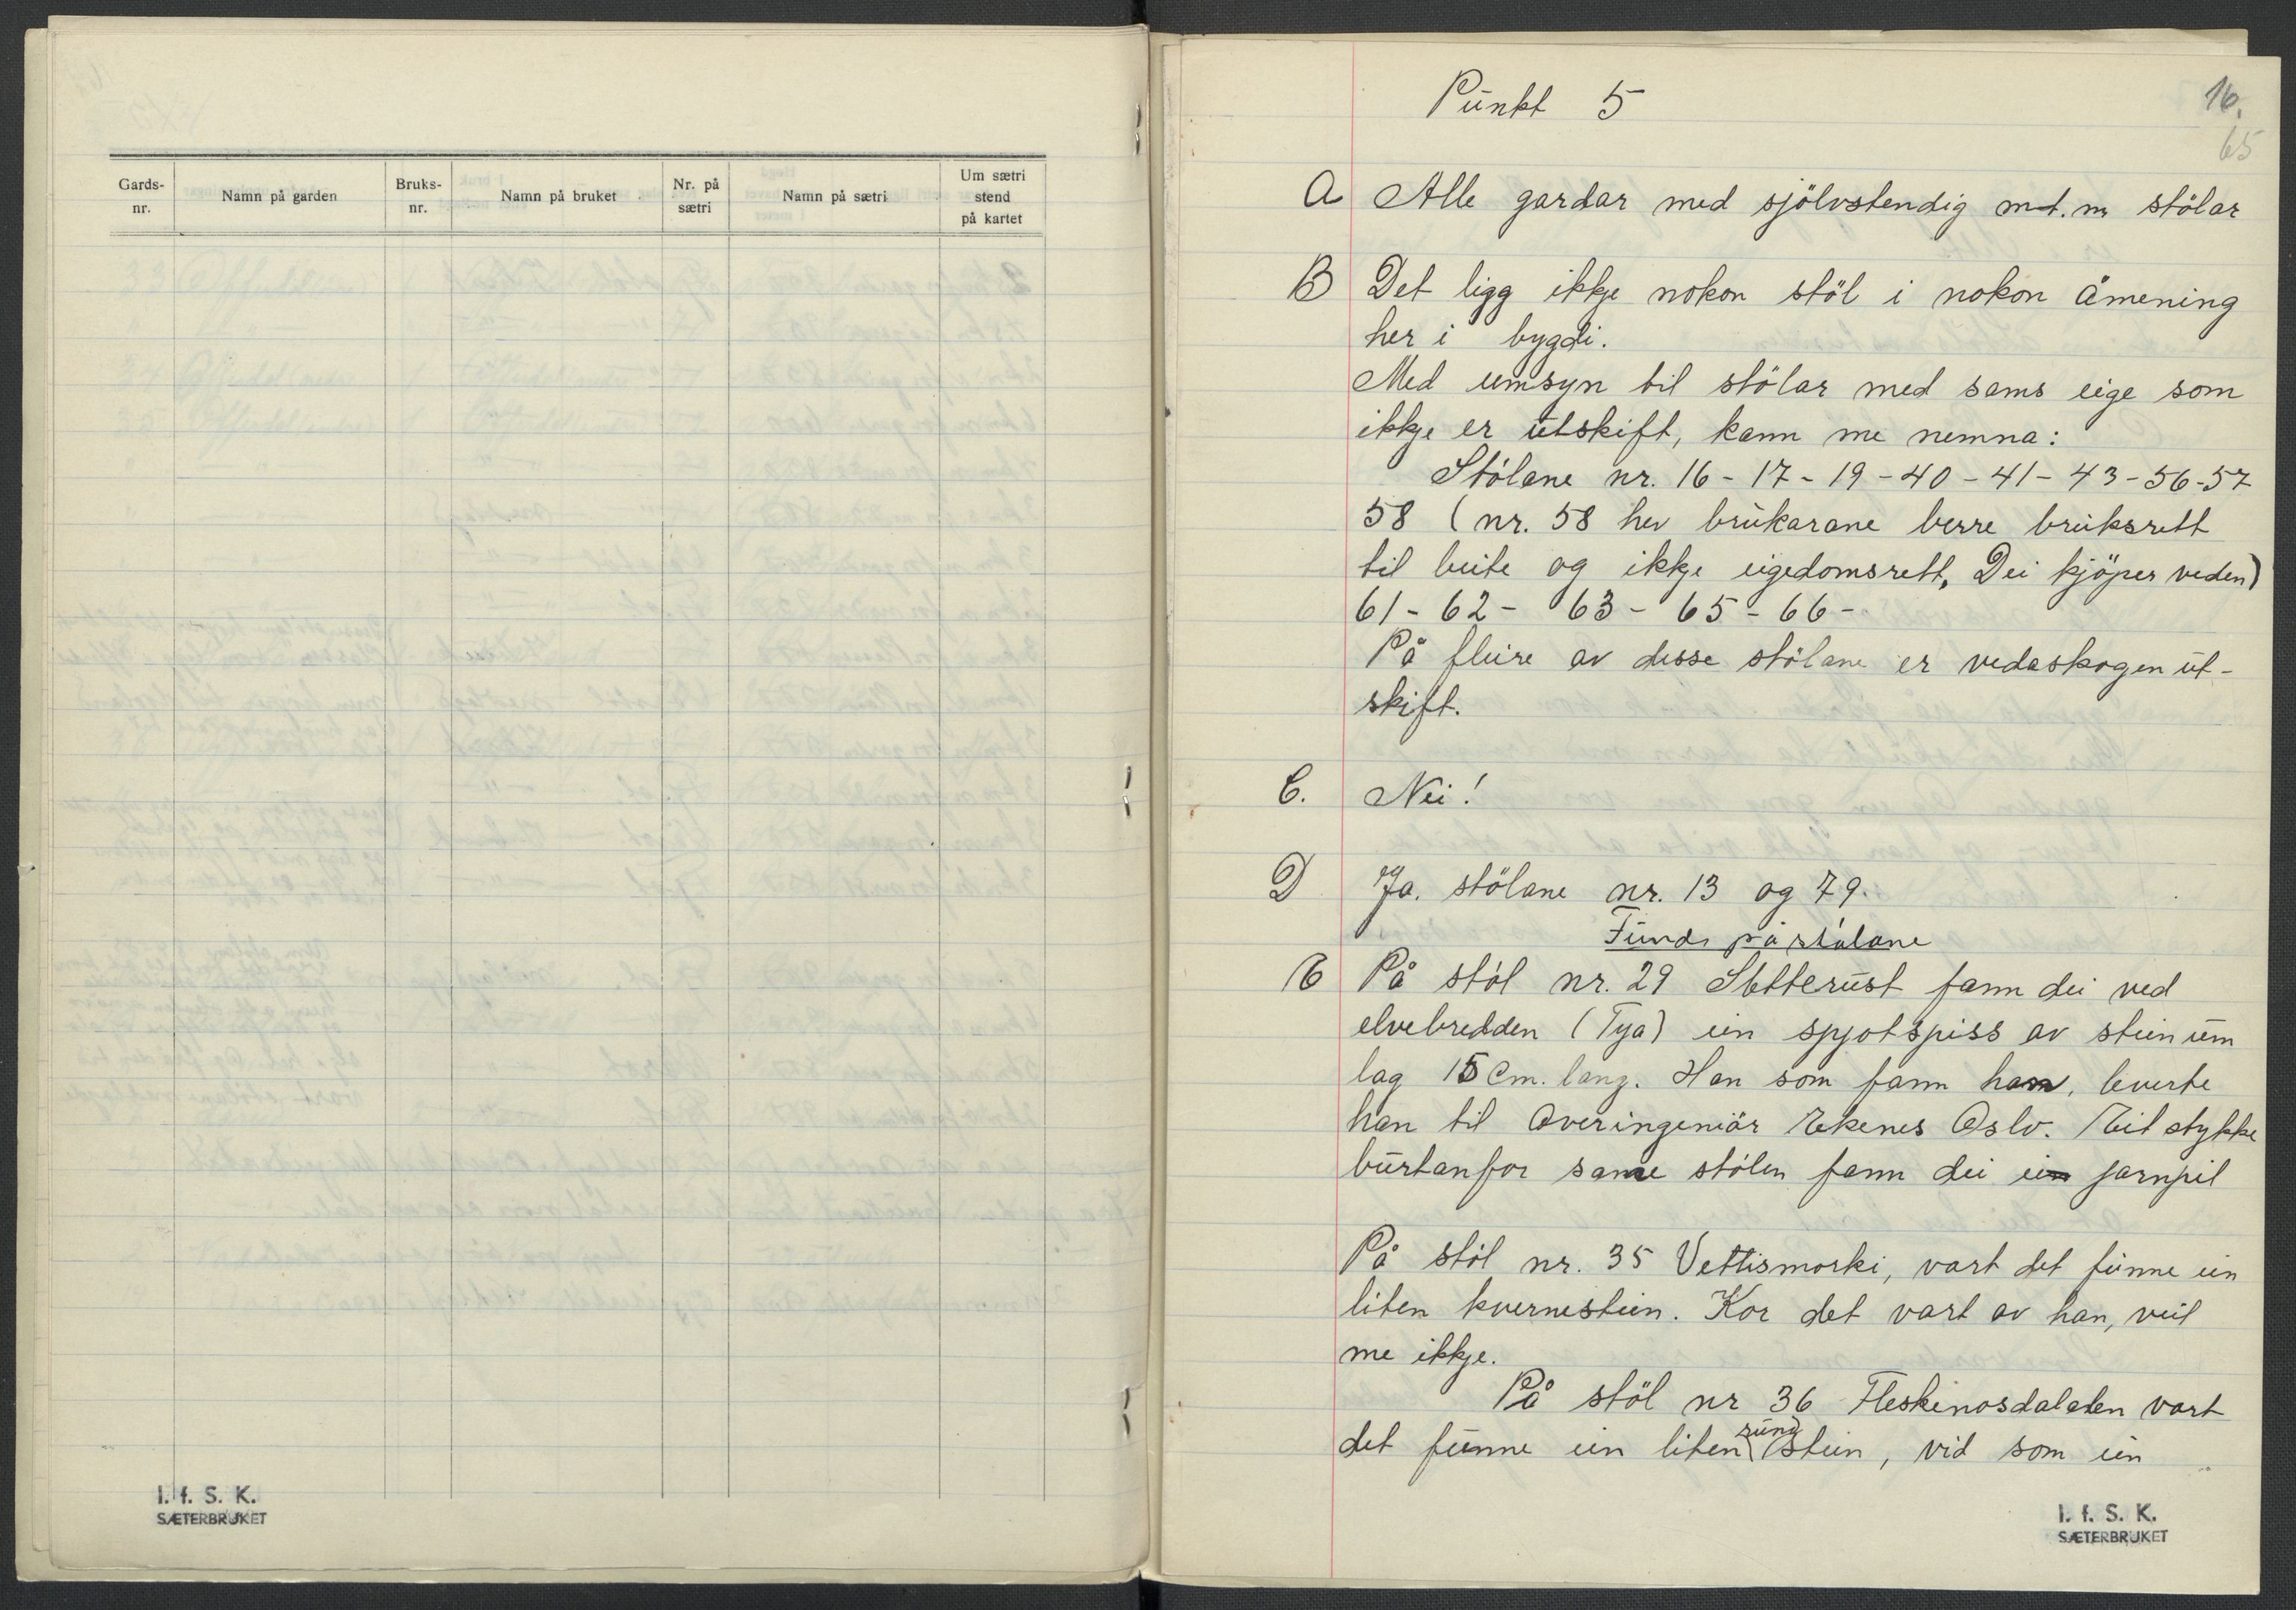 Gards-
nr.
Namn på garden
Bruks-
nr.
Namn på bruket
Nr. på
sætri
Namn på sætri
Um sætri
stend
på kartet
I. f. S. K.
SÆTERBRUKET
16.
65
Punkt 5
A Alle gardar med sjölvstendig m.t. m stölar
B Det ligg ikkje nokon stöl i nokon åmening
her i bygdi.
Med umsyn til stölar med sams eige som
ikkje er utskift, kann me nemna:
Stölane nr. 16 - 17 - 19 - 40 - 41 - 43 - 56 - 57
58 (nr. 58 hev brukarane berre bruksrett
til beite og ikkje eigedomsrett, Dei kjöper veden)
61 - 62 - 63 - 65 - 66 -
På fleire av desse stölane er vedaskogen ut-
skift.
C. Nei!
D Ja. stölane nr. 13 og 79.
Funds på stølane
E På stöl nr. 29 Sletterust fann dei ved
elvebredden (Tya) ein spjotspiss av stein um
lag 15 cm. lang. Han som fann han, leverte
han til Overingeniör Ekenes Oslo. Eit stykke
burtanfor same stölen fann dei ein jarnpil
På stöl nr. 35 Vettismorki, vart det funne ein
liten kvernestein. Kor det vart av han, veit
me ikkje.
På stöl nr 36 Fleskenosdalalen vart
det funne ein liten rund stein, vid som ein
I. f. S. K.
SÆTERBRUKET